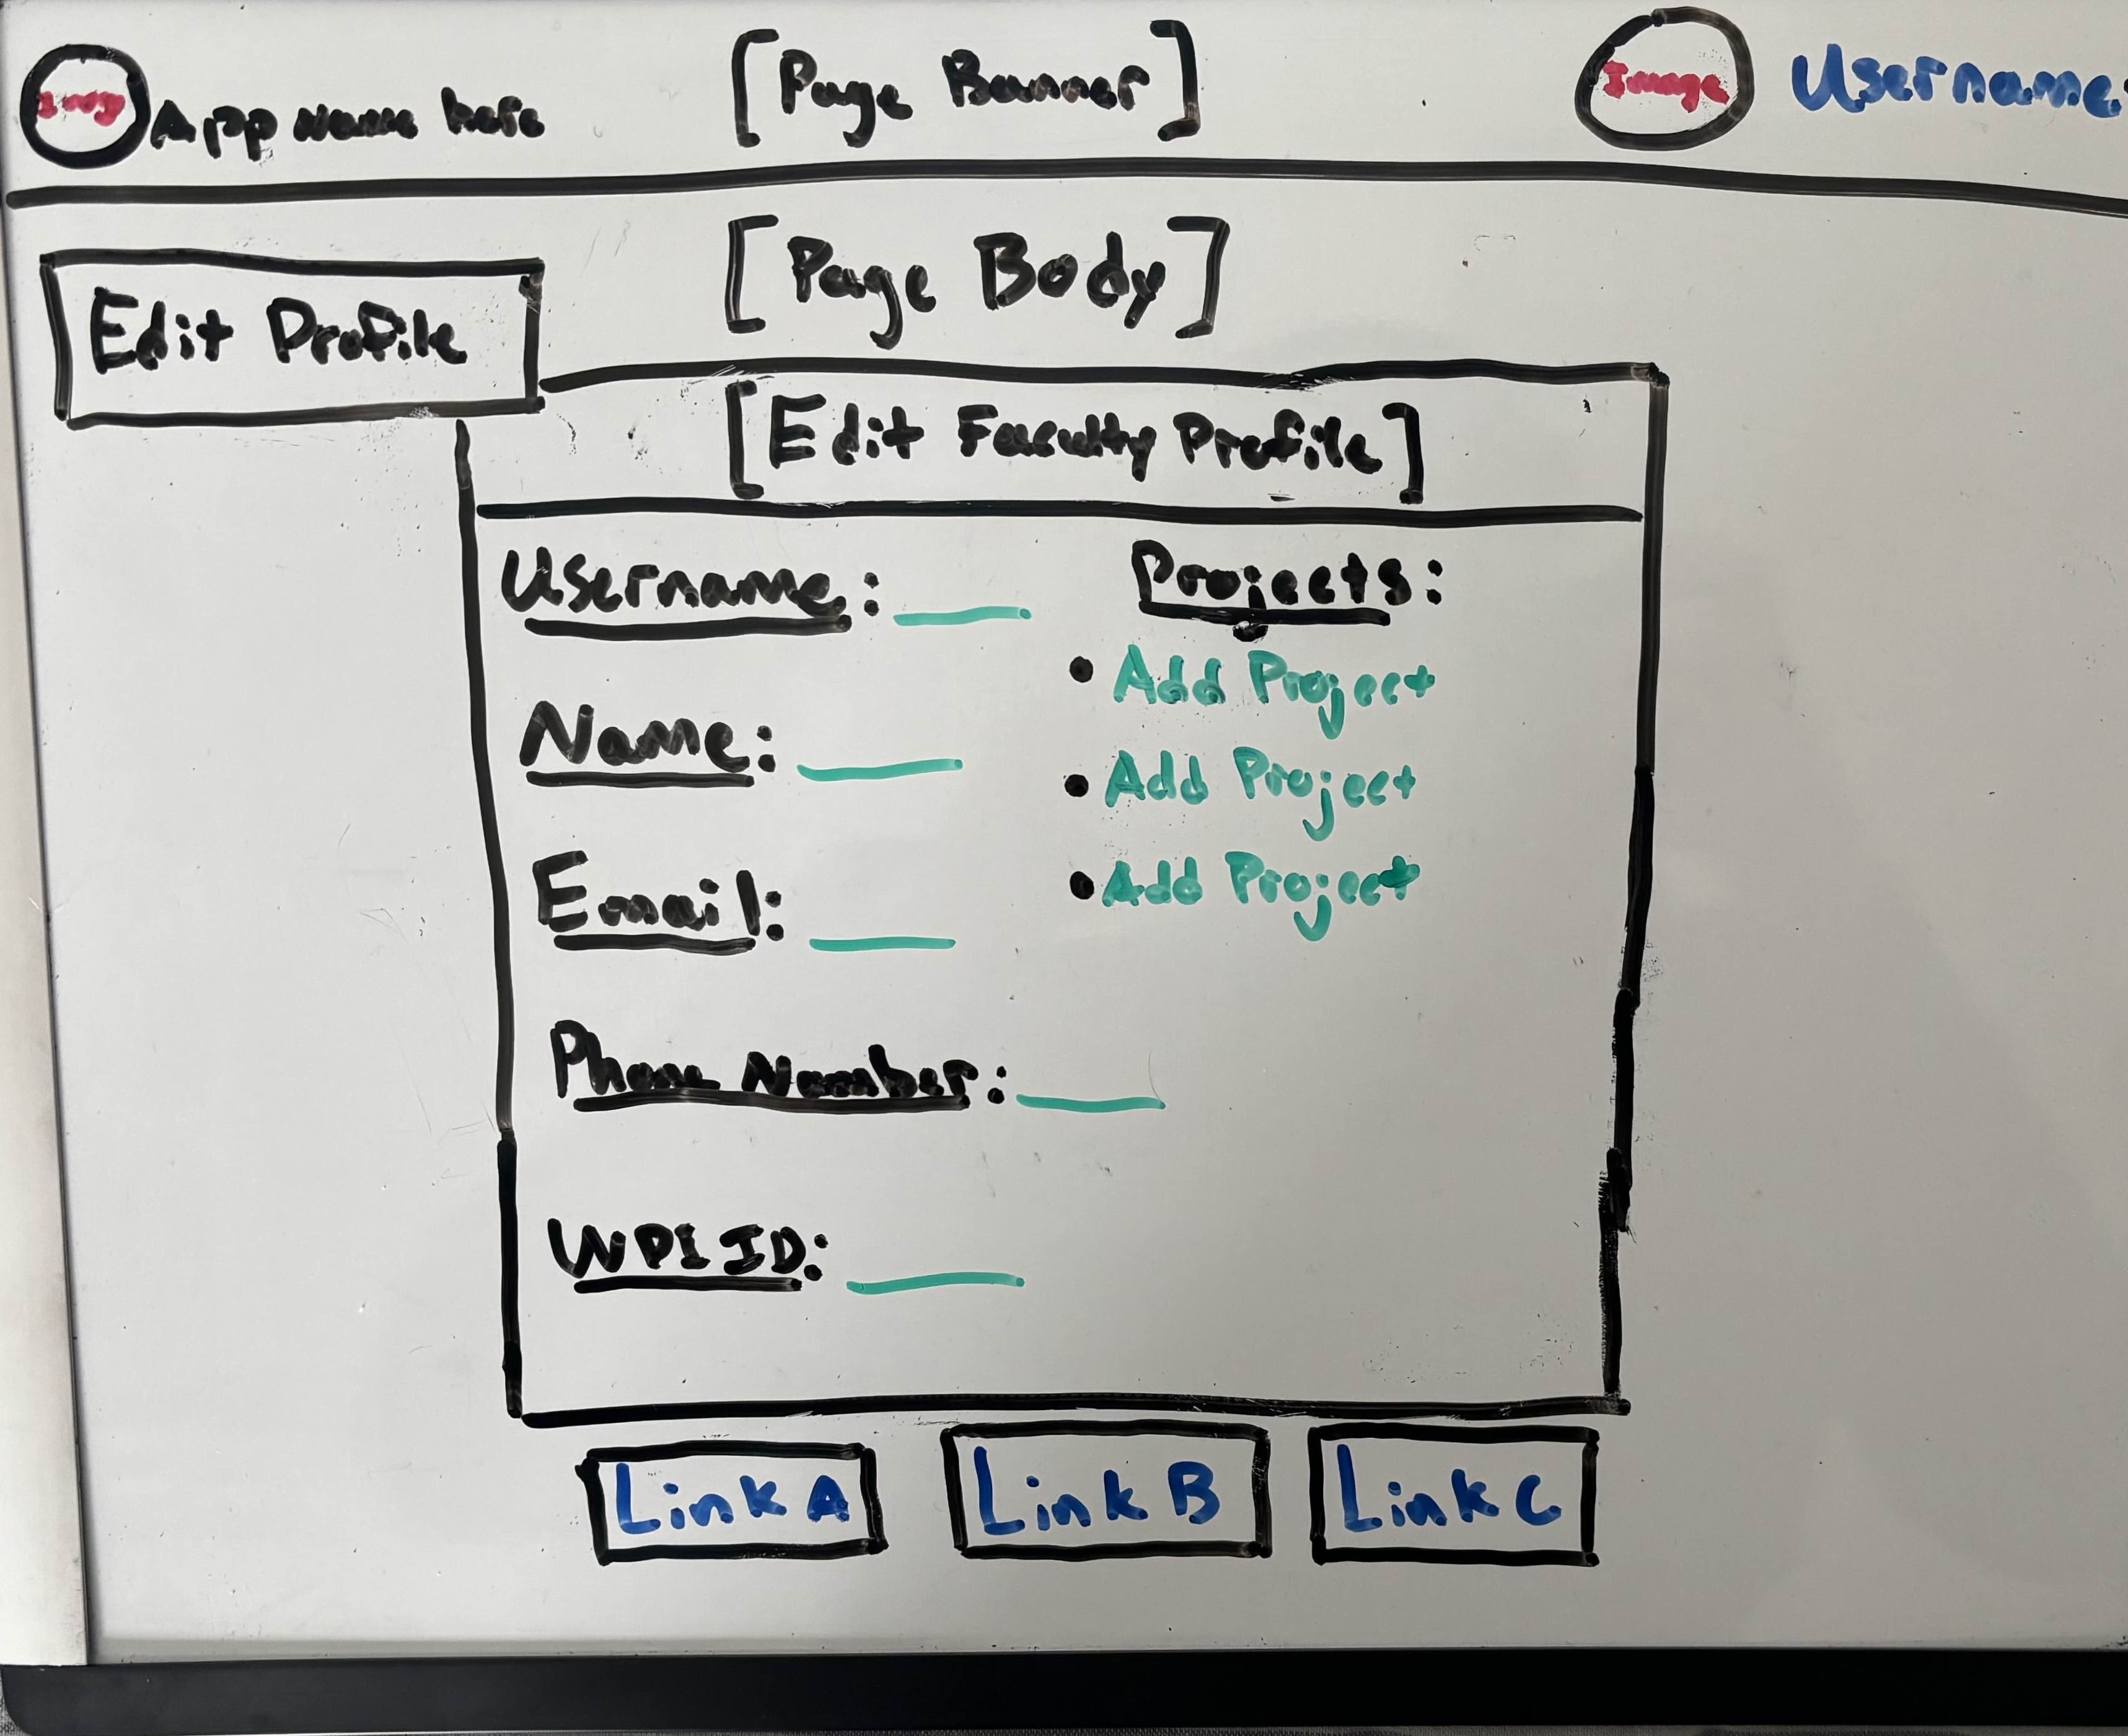 Image App Name here [Page Banner] Image Username
[Page Body]
Edit Profile
[Edit Faculty Profile]
Username:
Name:
Email:
Phone Number:
WPI ID:
Projects:
• Add Project
• Add Project
• Add Project
Link A Link B Link C